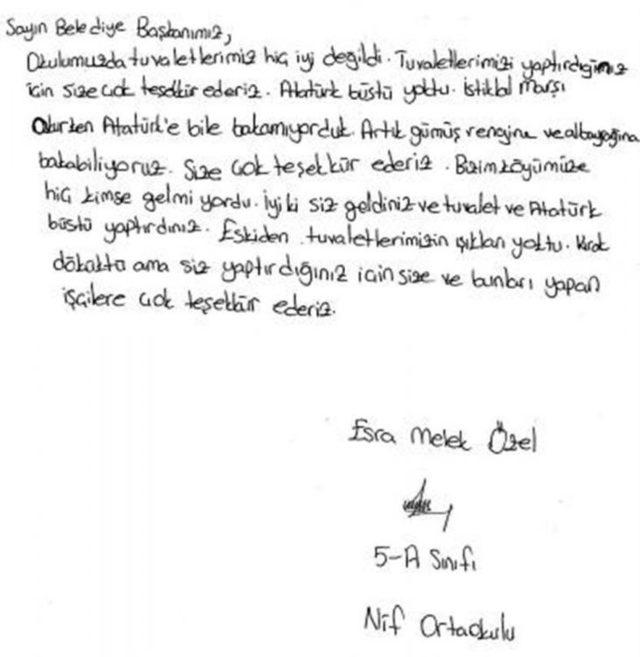 Sayın Belediye Başkanımız,
Okulumuzda tuvaletlerimiz hiç iyi değildi. Tuvaletlerimizi yaptırdığınız
için size çok teşekkür ederiz. Atatürk büstü yoktu. İstiklal Marşı
Okurken Atatürk'e bile bakamıyorduk. Artık gümüş rengine ve albayrağına
bakabiliyoruz. Size çok teşekkür ederiz. Bizim köyümüze
hiç kimse gelmi yordu. İyi ki siz geldiniz ve tuvalet ve Atatürk
büstü yaptırdınız. Eskiden tuvaletlerimizin ışıkları yoktu. Kırık
dökoktu ama siz yaptırdığınız için size ve bunları yapan
işçilere çok teşekkür ederiz.
Esra Melek Özel
5-A Sınıfı
Nif Ortaokulu